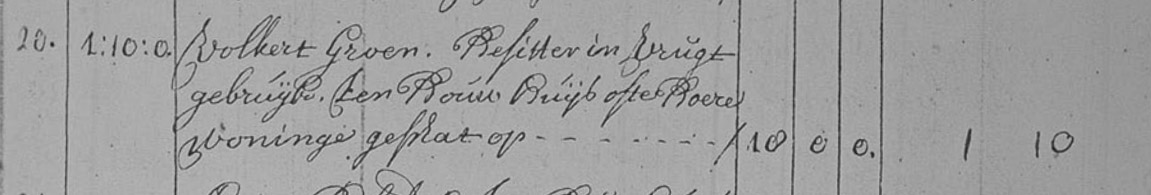 20. 1:10:0. Volkert Groen. Besitter in Vrugt
gebruÿk. Een Bouw Huÿs ofte Boere
Woninge geschat op - - - - - - - / 18 0 0. 1 10